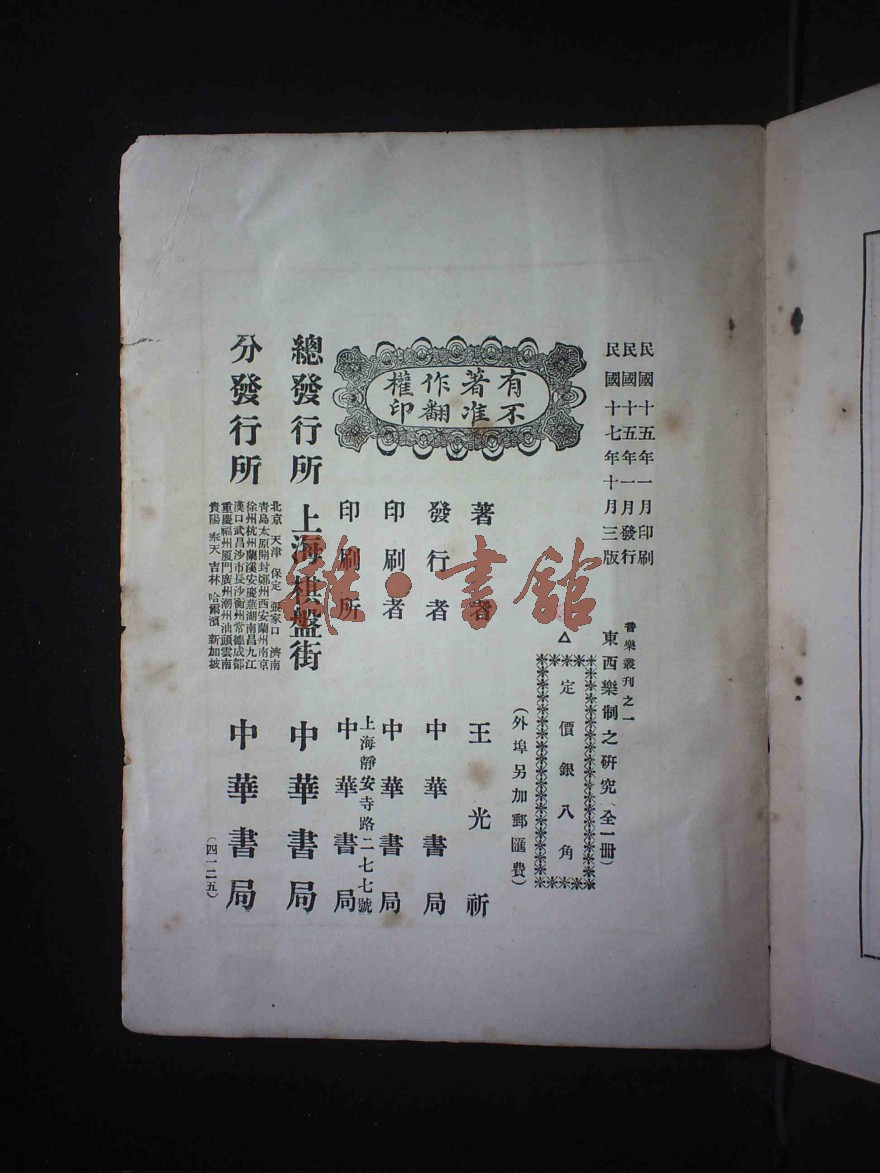 民國十五年一月印刷
民國十五年一月發行
民國十七年十月三版
音樂叢刊之一
東西樂制之研究(全一冊)
△定價銀八角
(外埠另加郵匯費)
有著作權
不准翻印
著者 王光祈
發行者 中華書局
印刷者 中華書局
上海靜安寺路二七七號
印刷所 中華書局
總發行所 上海棋盤街 中華書局
分發行所
北京 天津 保定 張家口 濟南
青島太原開封鄭州西安蘭州南京
徐州杭州蘭溪安慶蕪湖南昌九江
漢口武昌沙市長沙衡州常德成都
重慶福州厦門廣州潮州汕頭雲南
貴陽 奉天 吉林 哈爾濱 新加坡
中華書局
(四一二五)
雜·書館